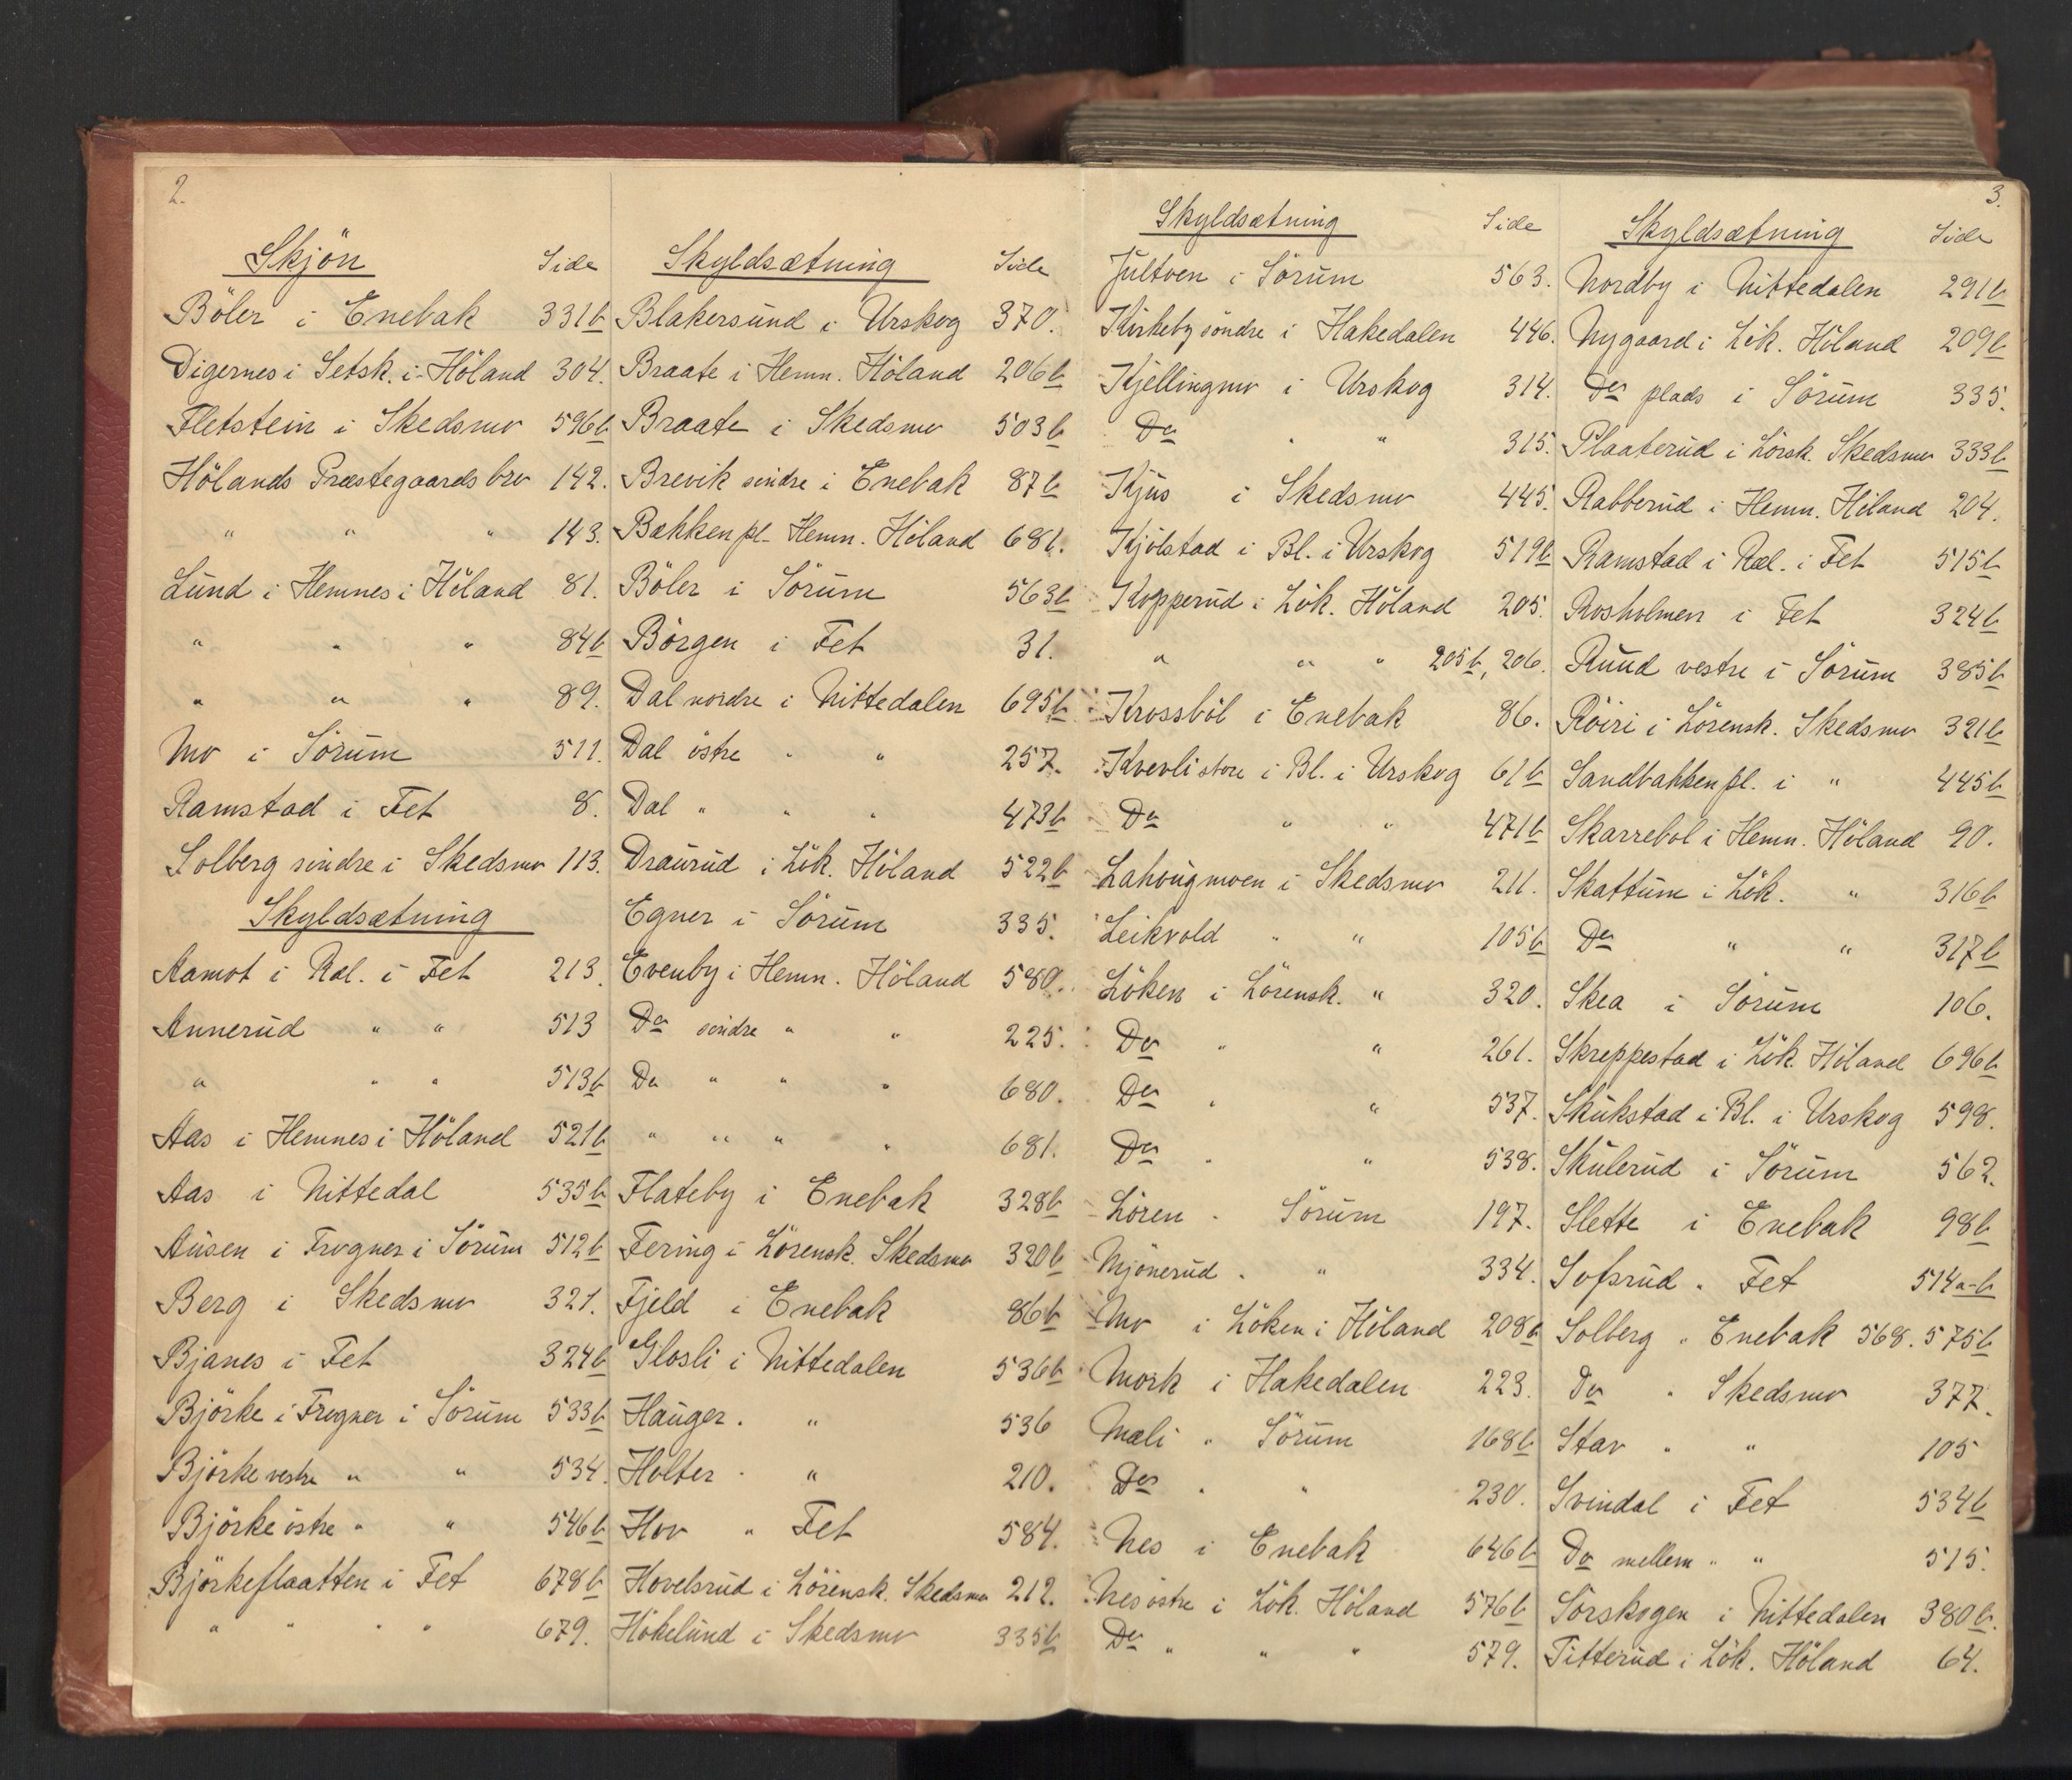 2.
Skjön Side
Böler i Enebak 331b
Digernes i Setsk. i Höland 304.
Fletstein i Skedsmo 596b
Hölands Præstegaards bro 142.
" " " 143.
Lund i Hemnes i Höland 81.
" " " 84b
" " " 89.
Mo i Sörum 511.
Ramstad i Fet 8.
Solberg söndre i Skedsmo 113.
Skyldsætning
Aamot i Ræl. i Fet 213.
Annerud " " 513
" " " 513b
Aas i Hemnes i Höland 521b
Aas i Nittedal 535b
Ausen i Frogner i Sörum 512b
Berg i Skedsmo 321.
Bjanes i Fet 324b
Björke i Frogner i Sörum 533b
Björke vestre " " 534.
Björke östre " " 546b
Björkeflaatten i Fet 678b
" " " " 679.
Skyldsætning Side
Blakersund i Urskog 370.
Braate i Hemn. Höland 206b
Braate i Skedsmo 503b
Brevik söndre i Enebak 87b
Bækken pl. Hemn. Höland 681.
Böler i Sörum 563b
Börgen i Fet 31.
Dal nordre i Nittedalen 695b
Dal östre " " 257.
Dal " " " 473b
Draurud i Lök. Höland 522b
Egner i Sörum 335.
Evenby i Hemn. Höland 580.
Do söndre " " 225.
Do " " " 680.
" " " " 681.
Flateby i Enebak 328b
Fering i Lörensk. Skedsmo 320b
Fjeld i Enebak 86b
Glosli i Nittedalen 536b
Hauger " " 536
Holter " " 210.
Hov " Fet 584.
Hovelsrud i Lörensk. Skedsmo 212.
Hökelund i Skedsmo 335b
Skyldsætning Side
Jultoen i Sörum 563.
Kirkeby söndre i Hakedalen 446.
Kjellingmo i Urskog 314.
Do " " 315.
Kjus i Skedsmo 445.
Kjölstad i Bl. i Urskog 519b
Kopperud i Lök. Höland 205.
" " " 205b, 206.
Krossböl i Enebak 86.
Kvevli store i Bl. i Urskog 61b
Do " " 471b
Lahougmoen i Skedsmo 211.
Leikvold " " 105b
Löken i Lörensk. " 320.
Do " " 261.
Do " " 537.
Do " " 538.
Lören " Sörum 197.
Mjönerud " " 334.
Mo i Löken i Höland 208b
Mork i Hakedalen 223.
Mæli " Sörum 168b
Do " " 230.
Nes i Enebak 646b
Nes östre i Lök. Höland 576b
Do " " " 579.
3.
Skyldsætning Side
Nordby i Nittedalen 291b
Nygaard i Lök. Höland 209b
Do plads i Sörum 335.
Plaaterud i Lörsk. Skedsmo 333b
Rabberud i Hemn. Höland 204.
Ramstad i Ræl. i Fet 515b
Rosholmen i Fet 324b
Ruud vestre i Sörum 385b
Röiri i Lörensk. Skedsmo 321b
Sandbakken pl. i " 445b
Skarrebol i Hemn. Höland 90.
Skattum i Lök. " 316b
Do " " 317b
Skea i Sörum 106.
Skreppestad i Lök. Höland 696b
Skukstad i Bl. i Urskog 598.
Skulerud i Sörum 562.
Slette i Enebak 98b
Sofsrud " Fet 514a-b
Solberg " Enebak 568. 575b
Do " Skedsmo 377.
Stav " " 105
Svindal i Fet 534b
Do mellem " " 515.
Sörskogen i Nittedalen 380b.
Titterud i Lök. Höland 64.